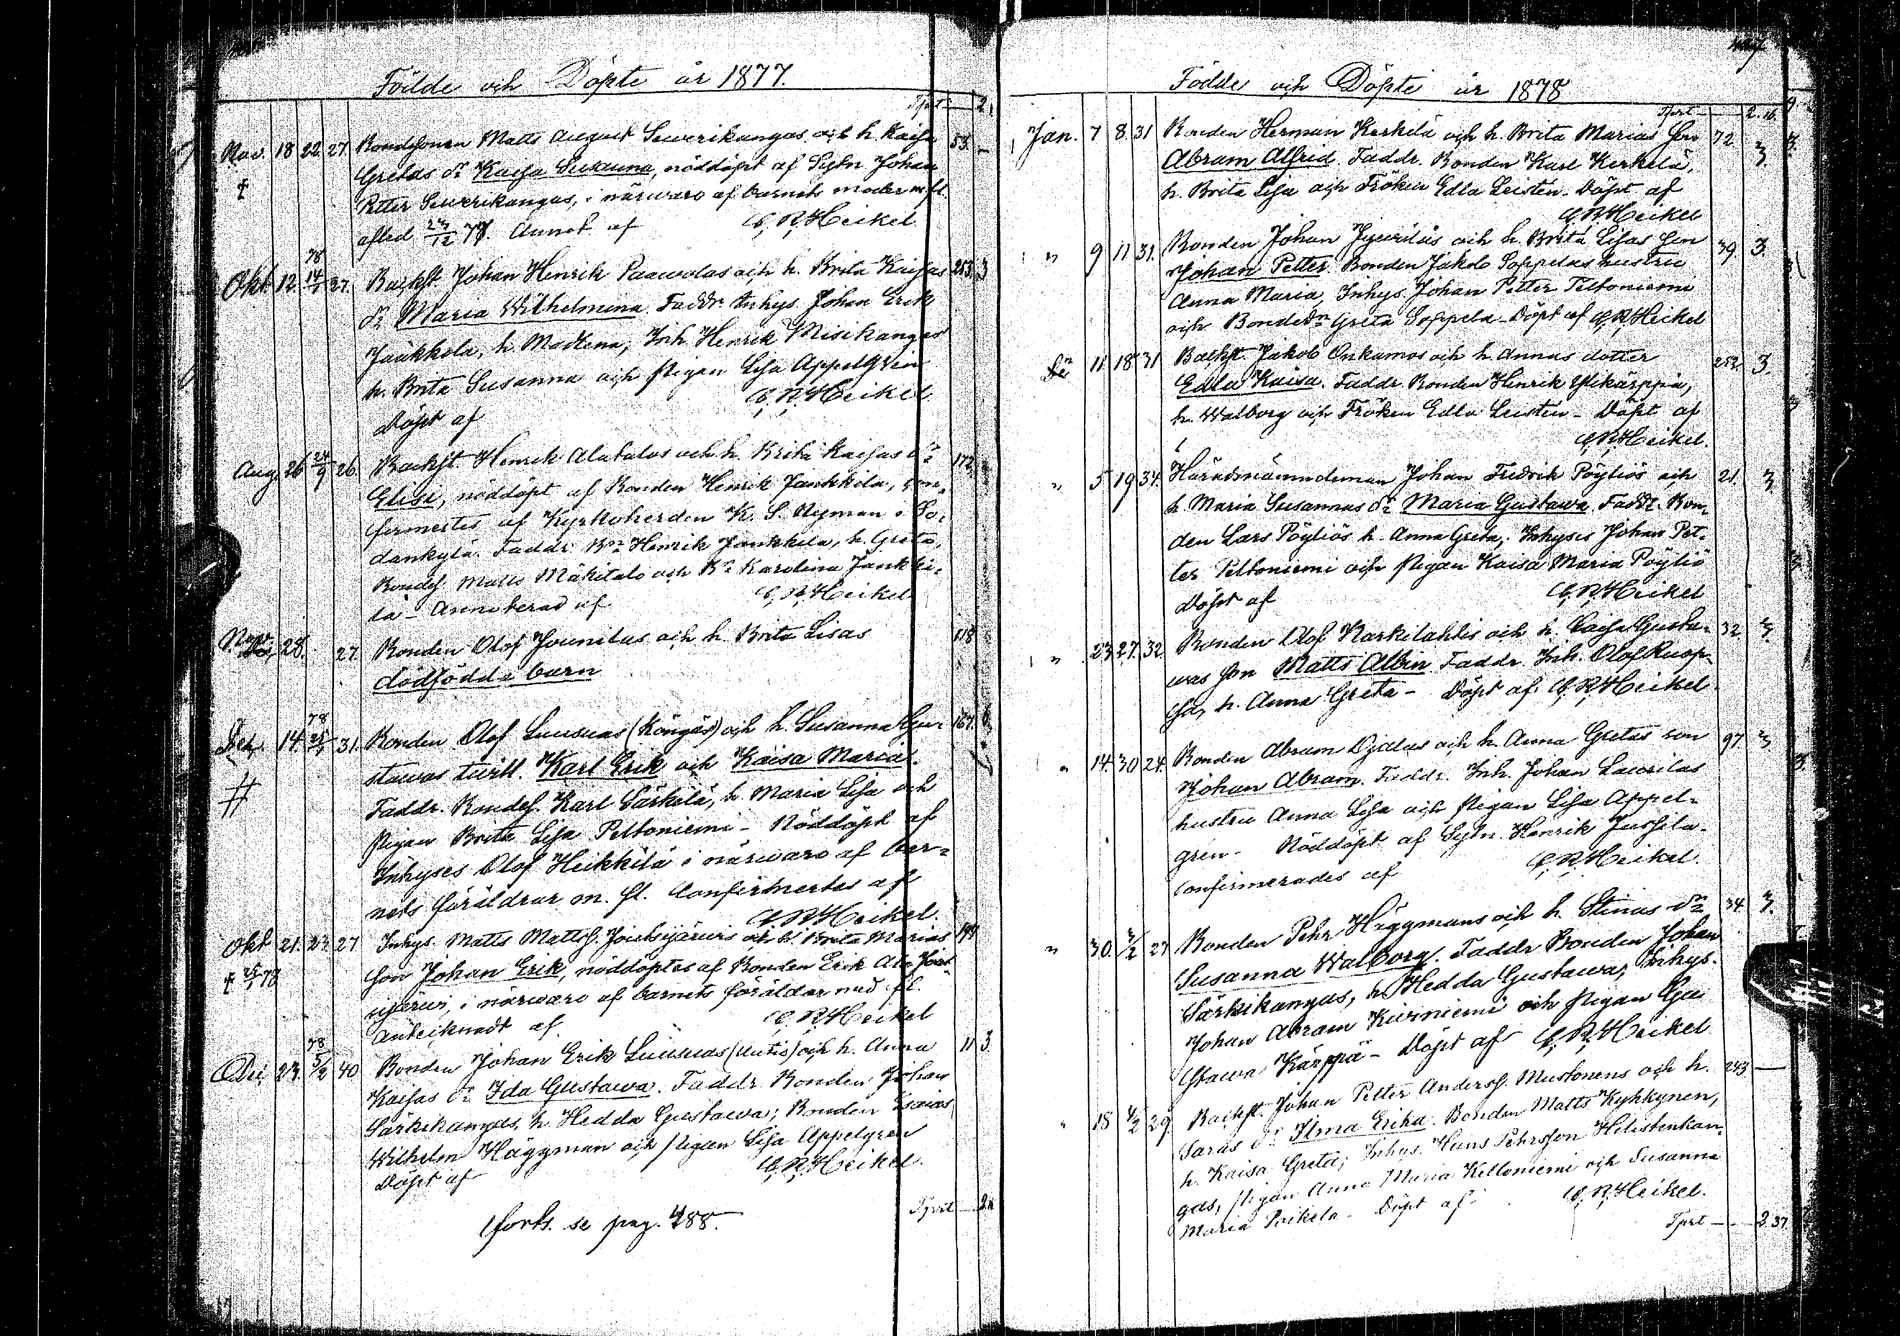 Födde och Döpte år 1877.
Tprt 2.
Nov. 18 22. 27. Bondesonen Matts August Sewerikangas och h. Kaisa 53. –
Gretas dr Kaisa Susanna, nöddöpt af Sytn Johan
Petter Sewerikangas, i närwaro af barnets moder m. fl.
afled 23/12 77. Annot. af C. R. Heikel
Okt 12. 78 14/1 27. Backst. Johan Henrik Paawolas och h. Brita Kaisas 253. 3
dr Maria Wilhelmina. Faddr. Inhys. Johan Erik
Jaakkola, h. Madlena, Inh. Henrik Misikangas
h. Brita Susanna och pigan Lisa Appelgrén
Döpt af C. R. Heikel
Aug. 26 24/9 26. Backst. Henrik Alatalos och h. Brita Kaisas dr 172.
Elisi, nöddöpt af Bonden Henrik Jankkila, con-
firmertes af Kyrkoherden K. S. Nyman i So-
dankylä. Faddr. Bn Henrik Jankkila, h. Greta,
Bondes. Matts Mäkitalo och Bn Karolina Jankki-
la – Annoterad af C. R. Heikel
Nov. 28. 27. Bonden Olof Jounilas och h. Brita Lisas 118
dödfödda barn
Dec. 14. 78 31. Bonden Olof Luusuas (Köngäs) och h. Susanna Gu- 167. 6.
stawas twill. Karl Erik och Kaisa Maria.
Faddr. Bondes. Karl Särkelä, h. Maria Lisa och
Pigan Brita Lisa Peltoniemi – Nöddöpt af
Inhyses Olof Heikkilä i närwaro af bar-
nets föräldrar m. fl. Confirmertes af
C. R. Heikel.
Okt 21. 23. 27 Inhys. Matts Matts. Joutsijärwis och h. Brita Marias 144
† 25/1 78 son Johan Erik, nöddöptes af Bonden Erik Ala Jout-
sijärwi, i närwaro af barnets föräldar med fl.
Antecknadt af C. R. Heikel
Dec. 23. 78 5/2 40 Bonden Johan Erik Luusuas (Autis) och h. Anna 11 3.
Kaisas dr Ida Gustawa. Faddr. Bonden Johan
Särkikangas, h. Hedda Gustawa; Bonden Esaias
Wilhelm Häggman och pigan Lisa Appelgren
Döpt af C. R. Heikel.
Tprt 2.
forts. se pag. 488.
Födde och Döpte år 1878
Tprt – 2. 16.
Jan. 7 8. 31 Bonden Herman Kerkelä och h. Brita Marias son 72. 3.
Abram Alfrid. Faddr. Bonden Karl Kerkelä,
h. Brita Lisa och Fröken Edla Leistén. Döpt af
C. R. Heikel
" 9 11 31. Bonden Johan Jywriläs och h. Brita Lisas son 39. 3.
Johan Petter. Bonden Jakob Soppelas hustru
Anna Maria, Inhys. Johan Petter Peltoniemi
och Bondedn Greta Soppela – Döpt af C. R. Heikel
Dn 11 18 31 Backst. Jakob Onkamos och h. Annas dotter 252. 3.
Edla Kaisa. Faddr. Bonden Henrik Ylikärppä,
h. Walborg och Fröken Edla Leistén – Döpt af
C. R. Heikel.
" 5 19 34. Häradsnämndeman Johan Fredrik Pöyliös och 21. 3
h. Maria Susannas dr Maria Gustawa. Faddr. Bon-
den Lars Pöyliös h. Anna Greta; Inhyses Johan Pet-
ter Peltoniemi och pigan Kaisa Maria Pöyliö
Döpt af C. R. Heikel
" 23 27. 32. Bonden Olof Karkilahtis och h. Caisa Gusta- 32. 3.
was son Matts Albin. Faddr. Inh. Olof Ruop-
sa, h. Anna Greta – Döpt af C. R. Heikel
" 14. 30 24. Bonden Abram Ojalas och h. Anna Gretas son 97. 3
Johan Abram. Faddr. Inh. Johan Laurilas
hustru Anna Lisa och pigan Lisa Appel-
gren – Nöddöpt af Sytn. Henrik Jussila –
Confirmerades af C. R. Heikel.
" 30. 3/2 27 Bonden Pehr Häggmans och h. Stinas dr 34 3.
Susanna Walborg. Faddr Bonden Johan
Särkikangas, h. Hedda Gustawa; Inhys.
Johan Abram Kurniemi och pigan Gu-
stawa Kärppä – Döpt af C. R. Heikel
18 4/2 29. Backst. Johan Petter Anders. Mustonens och h. 243. —
Saras dr Ilma Erika. Bonden Matts Kyhkynen,
h. Kaisa Greta; Inhys. Hans Pehrsson Hilistenkan-
gas, pigan Anna Maria Kelloniemi och Susanna
Maria Poikela – Döpt af C. R. Heikel.
Tprt – 2. 37.